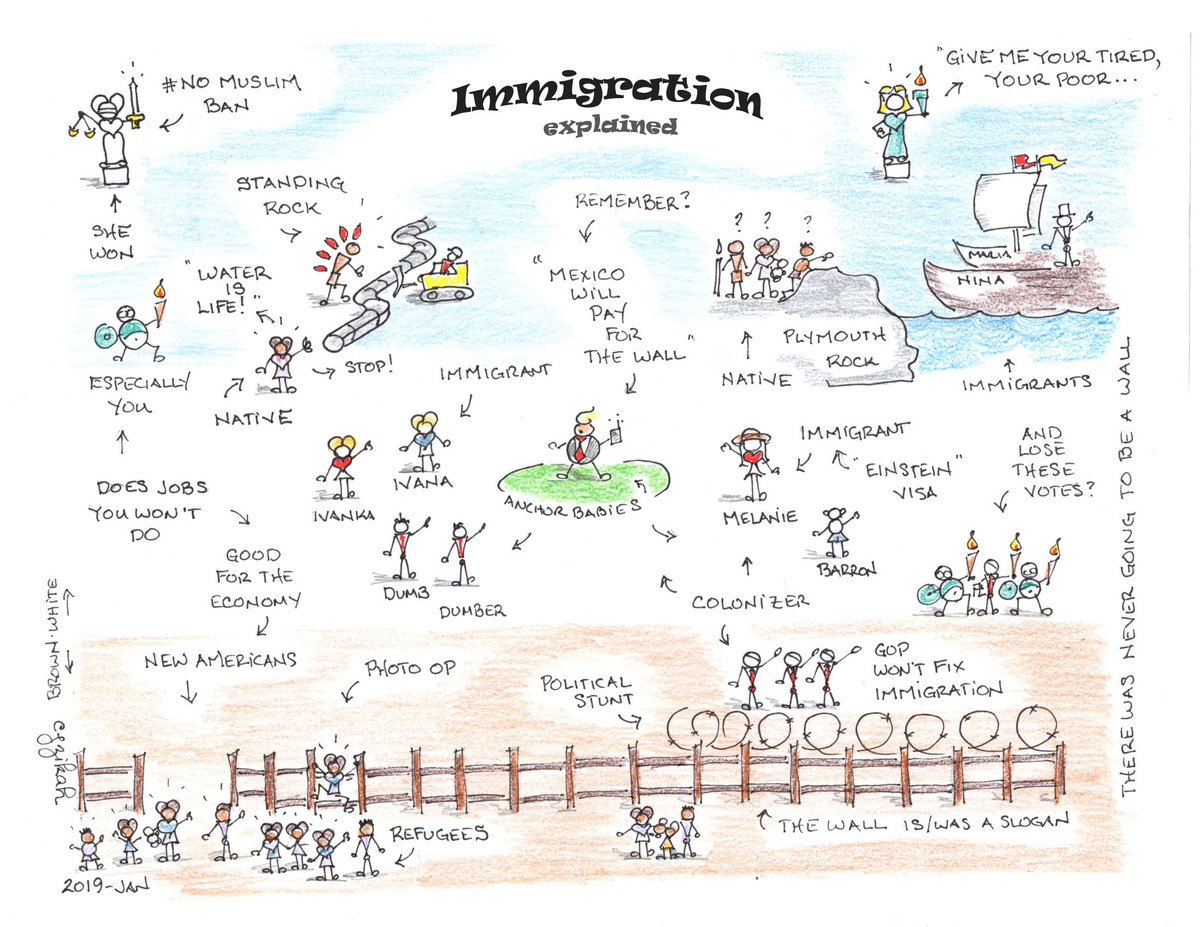 Immigration
explained
#NO MUSLIM
BAN
"GIVE ME YOUR TIRED,
YOUR POOR...
SHE
WON
STANDING
ROCK
REMEMBER?
"WATER
IS
LIFE!"
STOP!
NATIVE
"MEXICO
WILL
PAY
FOR
THE WALL"
NATIVE
PLYMOUTH
ROCK
MARIA
NINA
IMMIGRANTS
ESPECIALLY
YOU
DOES JOBS
YOU WON'T
DO
GOOD
FOR THE
ECONOMY
IMMIGRANT
IVANA
IVANKA
ANCHOR BABIES
DUMB
DUMBER
MELANIE
IMMIGRANT
"EINSTEIN"
VISA
BARRON
AND
LOSE
THESE
VOTES?
COLONIZER
BROWN·WHITE
NEW AMERICANS
PHOTO OP
POLITICAL
STUNT
GOP
WON'T FIX
IMMIGRATION
THE WALL IS/WAS A SLOGAN
REFUGEES
2019-JAN
THERE WAS NEVER GOING TO BE A WALL